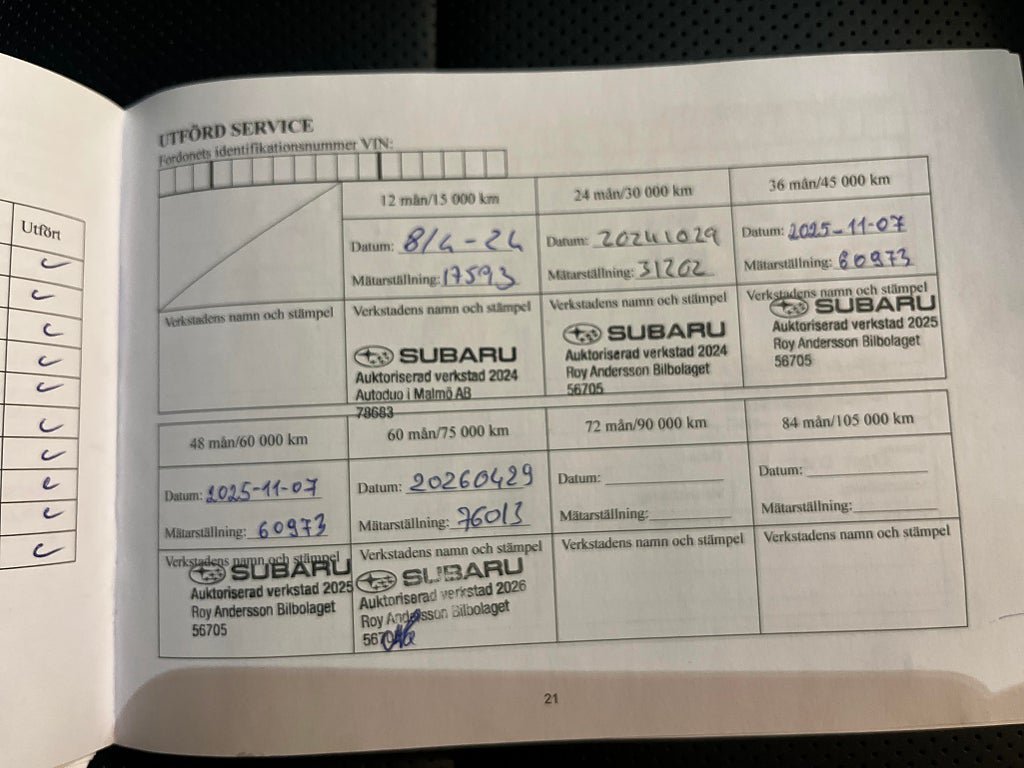 Utfört
UTFÖRD SERVICE
Fordonets identifikationsnummer VIN:
Verkstadens namn och stämpel
12 mån/15 000 km
Datum: 8/4-24
Mätarställning: 17593
Verkstadens namn och stämpel
SUBARU
Auktoriserad verkstad 2024
Autoduo i Malmö AB
78683
24 mån/30 000 km
Datum: 20241029
Mätarställning: 31262
Verkstadens namn och stämpel
SUBARU
Auktoriserad verkstad 2024
Roy Andersson Bilbolaget
56705
36 mån/45 000 km
Datum: 2025-11-07
Mätarställning: 60973
Verkstadens namn och stämpel
SUBARU
Auktoriserad verkstad 2025
Roy Andersson Bilbolaget
56705
48 mån/60 000 km
Datum: 2025-11-07
Mätarställning: 60973
Verkstadens namn och stämpel
SUBARU
Auktoriserad verkstad 2025
Roy Andersson Bilbolaget
56705
60 mån/75 000 km
Datum: 20260429
Mätarställning: 76013
Verkstadens namn och stämpel
SUBARU
Auktoriserad verkstad 2026
Roy Andersson Bilbolaget
72 mån/90 000 km
Datum:
Mätarställning:
Verkstadens namn och stämpel
84 mån/105 000 km
Datum:
Mätarställning:
Verkstadens namn och stämpel
21